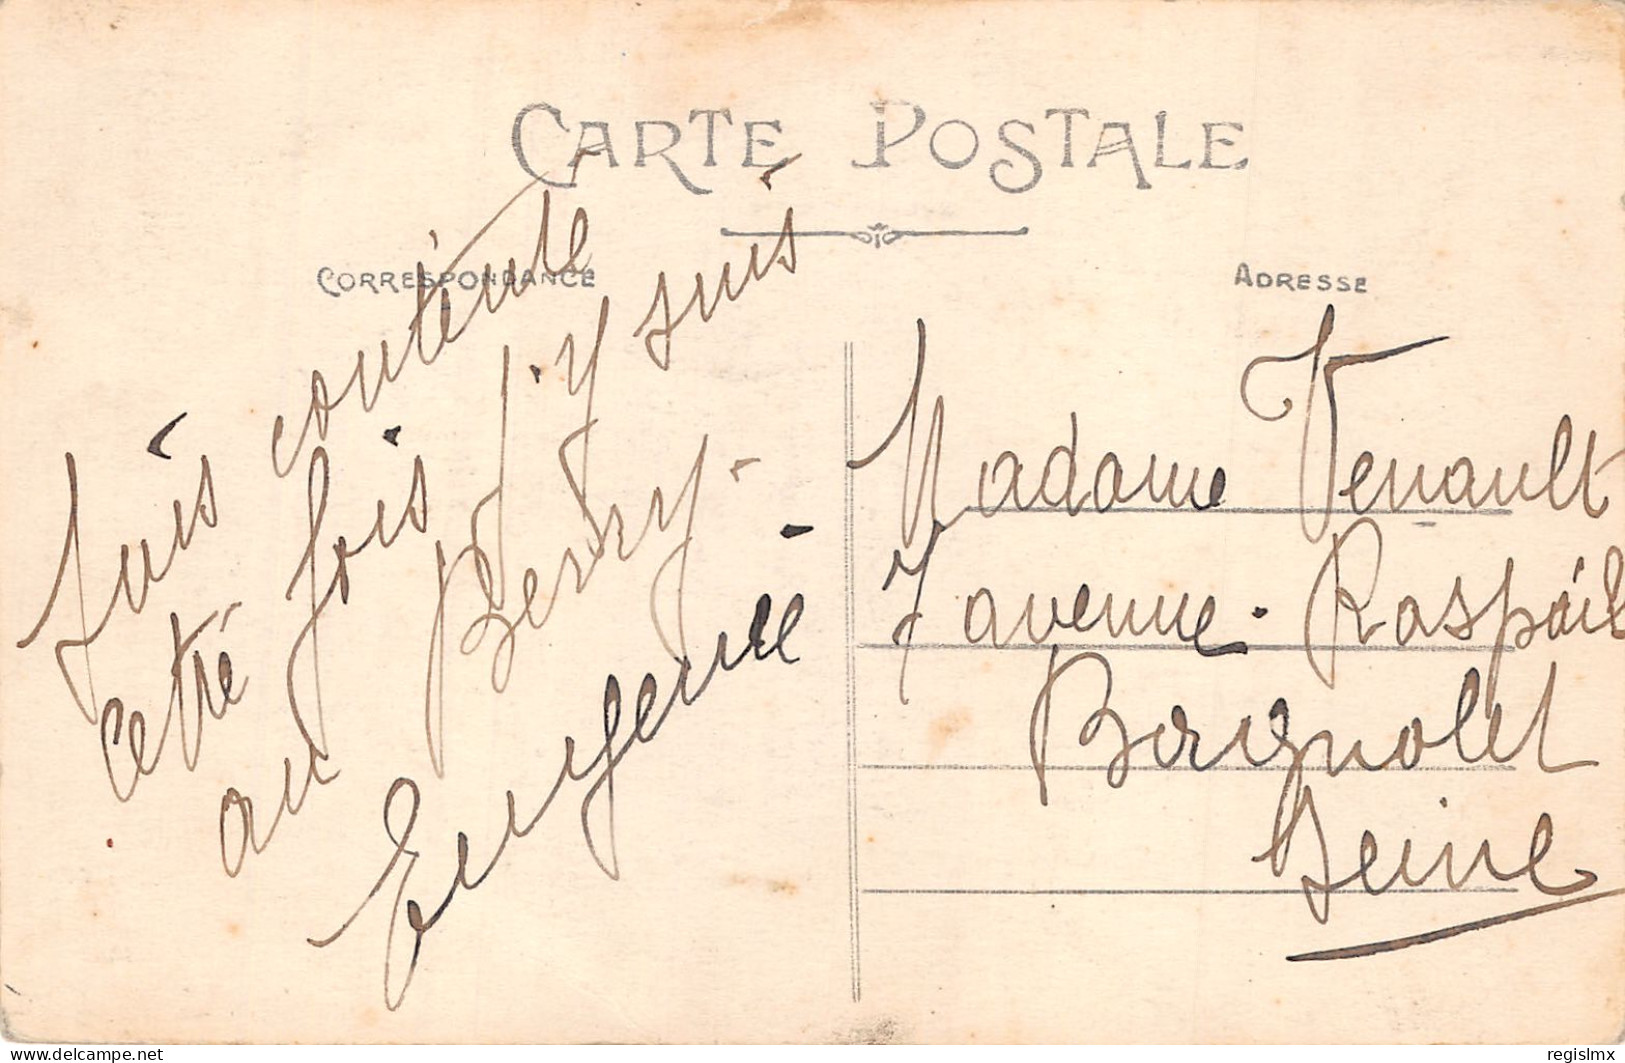 CARTE POSTALE
CORRESPONDANCE
ADRESSE
Suis contente
cette fois j'y suis
au Berry.
Eugenie
Madame Venault
7 avenue Raspail
Bagnolet
Seine
delcampe.net
regislmx